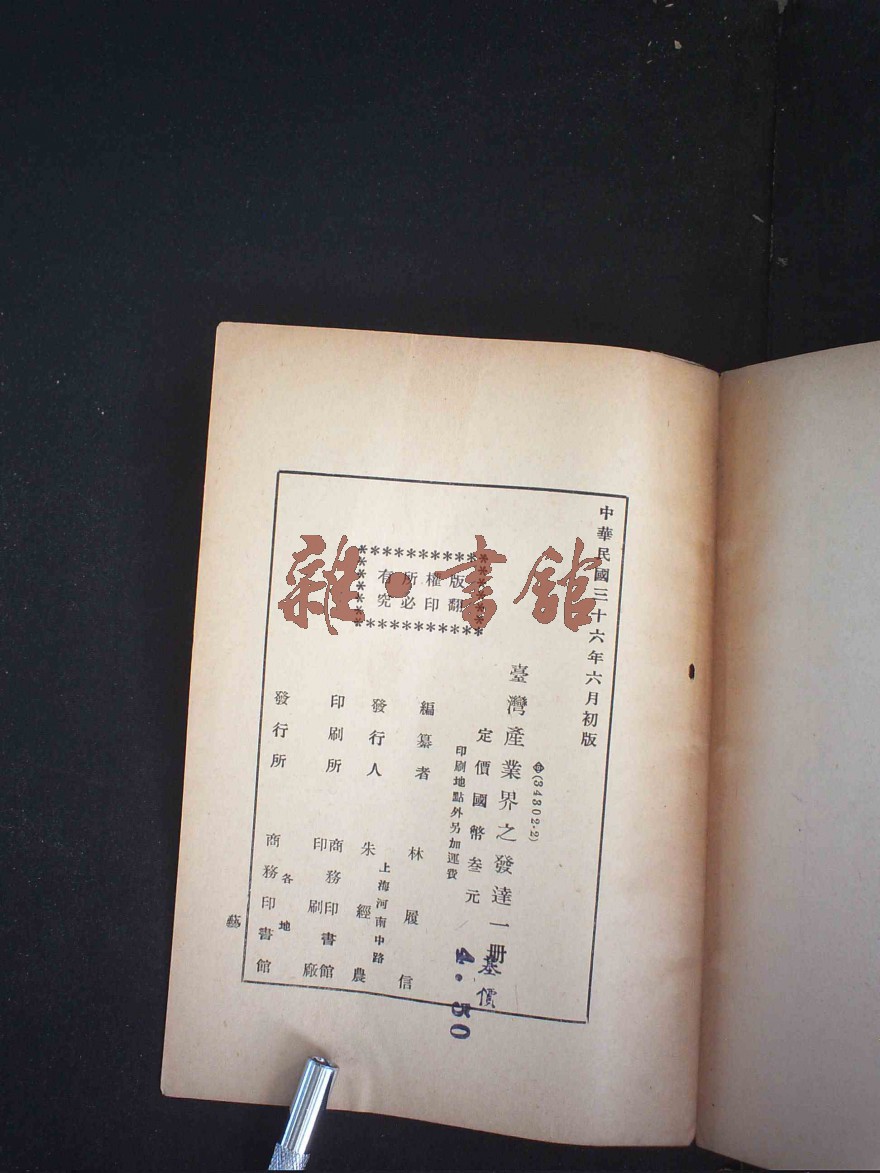 中華民國三十六年六月初版
版權所有
翻印必究
⊕(34302·2)
臺灣產業界之發達一册
定價國幣叁元
印刷地點外另加運費
基價
4.50
編纂者 林履信
發行人 朱經農
上海河南中路
印刷所 商務印書館印刷廠
發行所 各地
商務印書館
藝
雜·書館